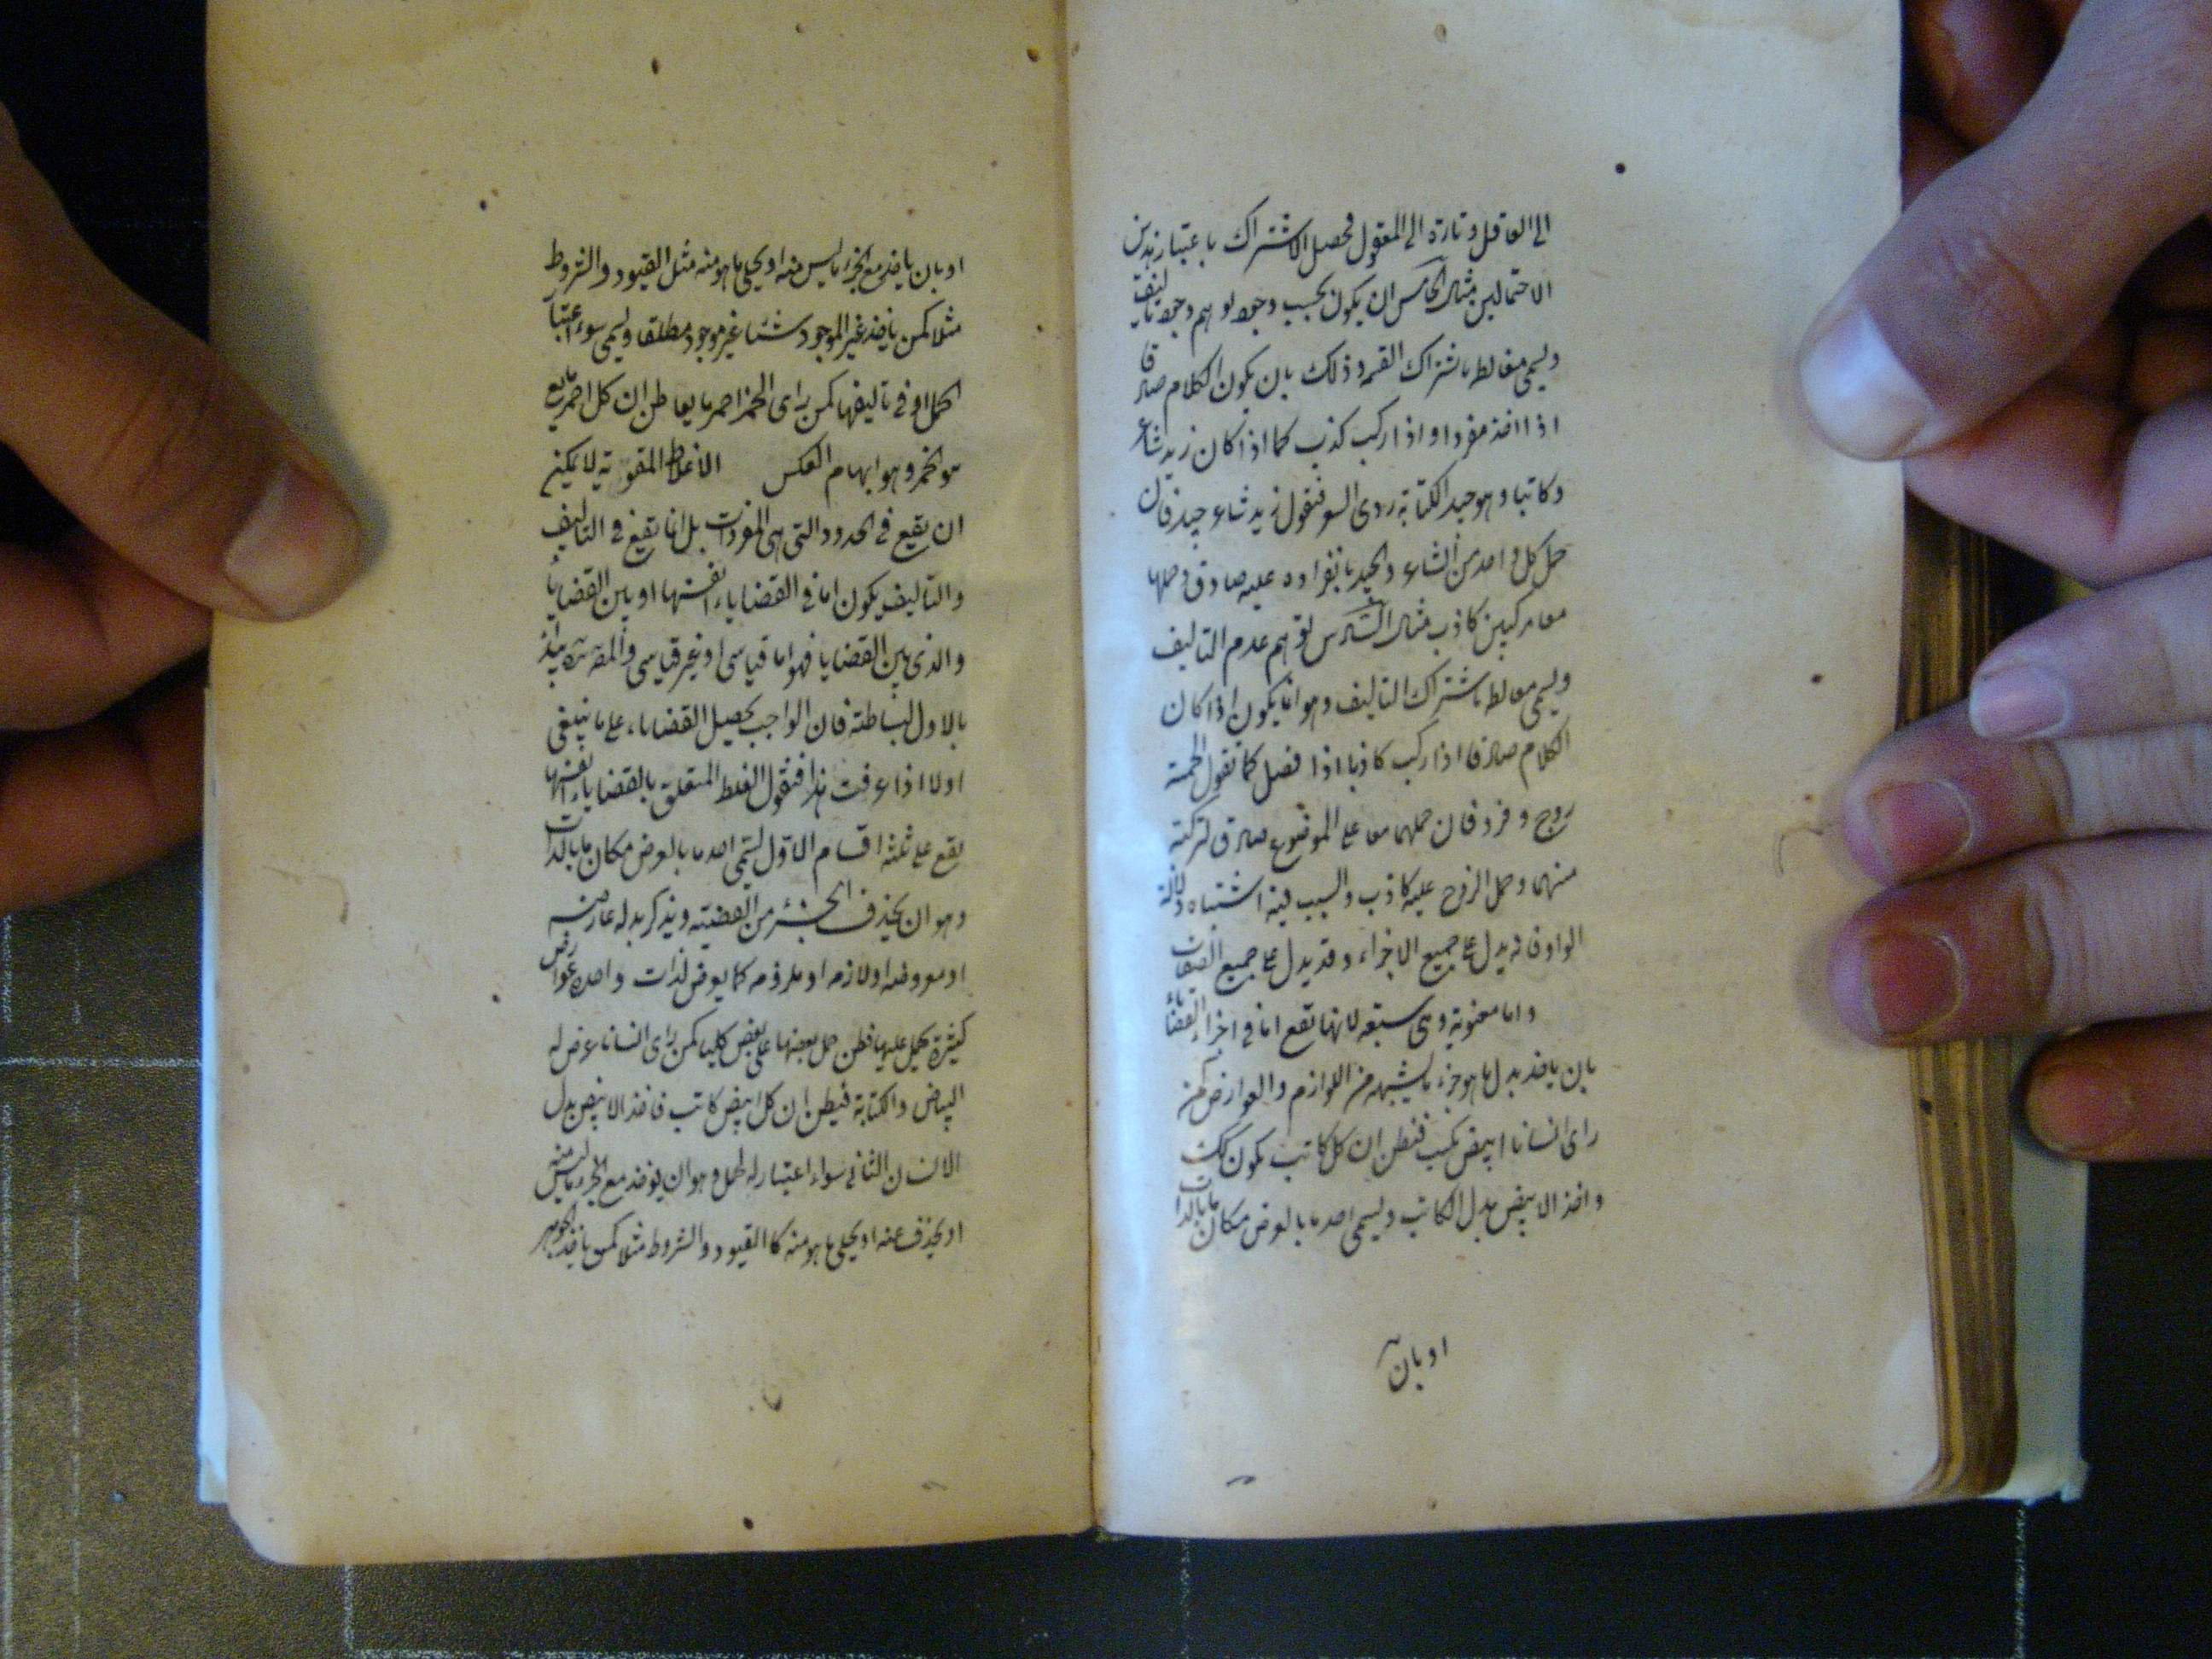 الى العاقل وتارة الى المعقول فحصل الاشتراك باعتبار هذين
الاحتمالين مثال الخامس ان يكون بحسب وجود لو هم وجود تاليف
ويسمى مغالطه باشتراك القسمه وذلك بان يكون الكلام صادقا
اذا اخذ مفردا واذا ركب كذب كما اذا كان زيد شاعر
وكاتبا وهو جيد الكتابة ردى الشعر فنقول زيد شاعر جيد فان
حمل كل واحد من الشاعر والجيد بانفراده عليه صادق وحملها
معا مركبين كاذب مثال السادس توهم عدم التاليف
ويسمى مغالطه باشتراك التاليف وهو انما يكون اذا كان
الكلام صادقا اذا ركب كاذبا اذا فصل كما تقول الخمسة
زوج و فرد فان حملهما معا على الموضوع صادق لتركبه
منهما وحمل الزوج عليه كاذب والسبب فيه اشتباه دلالة
الواو فانه يدل على جميع الاجزاء وقد يدل على جميع الصفات
واما معنوية وهى سبعه لانها تقع اما فى اجزاء القضايا
بان ياخذ بدل ما هو جزء ما يشبهه من اللوازم والعوارض كمن
راى انسانا ابيض يكتب فيظن ان كل كاتب يكون كك
واخذ الابيض بدل الكاتب ويسمى اخذ ما بالعرض مكان ما بالذات
او بان
او بان ياخذ مع الجزء ما ليس منه او يخلى ما هو منه مثل القيود والشروط
مثلا كمن ياخذ غير الموجود شئيا غير موجود مطلقا ويسمى سوء اعتبار
الحمل او فى تاليفها كمن راى الخمر احمر مايعا ظن ان كل احمر مايع
هو الخمر وهو ايهام العكس الاغلاط المعنوية لا يمكن
ان يقع فى الحدود التى هى المفردات بل انما يقع فى التاليف
والتاليف يكون اما فى القضاياء انفسها او بين القضايا
والذى بين القضايا فهو اما قياسى او غير قياسى
بالاول لبساطته فان الواجب تحصيل القضايا، على ما ينبغى
اولا اذا عرفت هذا فنقول الغلط المتعلق بالقضاياء انفسها
يقع على ثلثه اقسام الاول يسمى اخذ ما بالعرض مكان ما بالذات
وهو ان يحذف الجزء من القضية ويذكر بدله عارضه
او معروضه او لازمه او ملزومه كما يعرض لذات واحده عوارض
كثيرة تحمل عليها فظن حمل بعضها على بعض كليا كمن راى انسانا عرض له
البياض والكتابة فيظن ان كل ابيض كاتب فاخذ الابيض بدل
الانسان الثانى سواء اعتبار الحمل وهو ان يؤخذ مع الجزء ما ليس منه
او يحذف عنه او يخلى ما هو منه كا القيود والشروط مثلا كمن ياخذ الجوهر